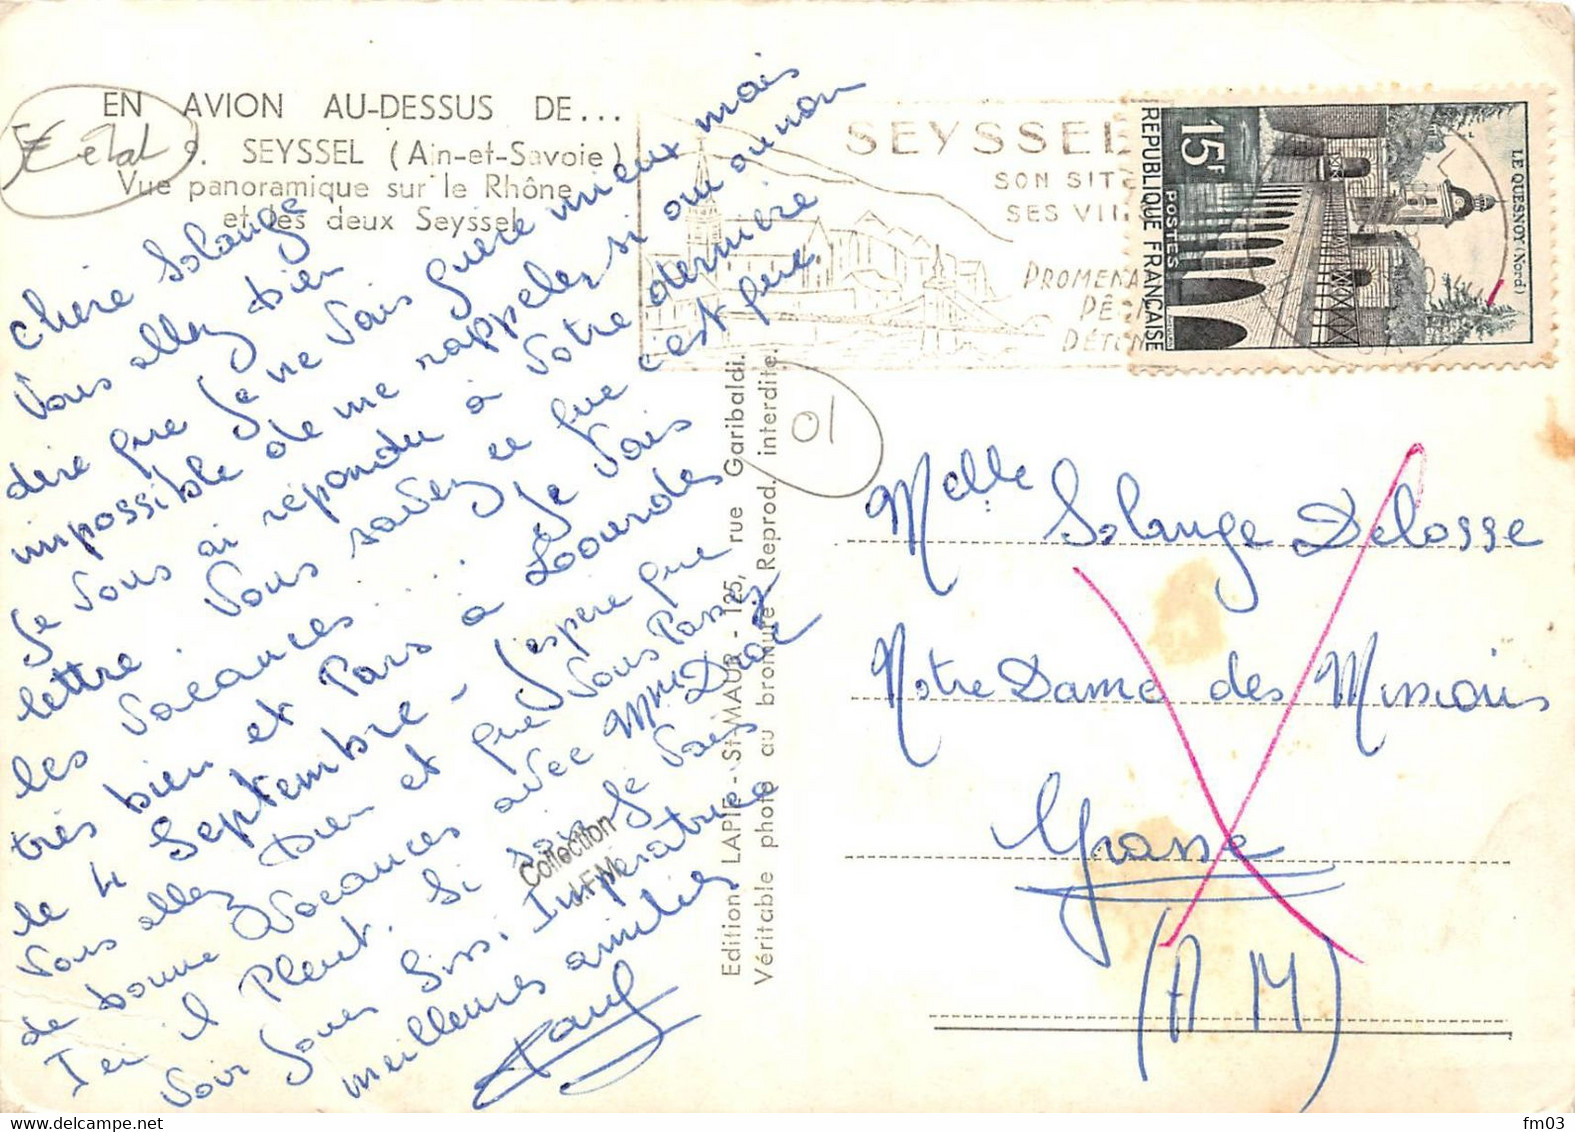 EN AVION AU-DESSUS DE...
9. SEYSSEL (Ain-et-Savoie)
Vue panoramique sur le Rhône
et les deux Seyssel
état
Chère Solange
Vous allez bien
dire que je ne vais guère mieux mais
impossible de me rappeler si oui ou non
Je vous ai répondu à votre dernière
lettre. Vous savez ce que c'est que
les vacances.... Je vais
très bien et Pars à Lourdes
le 4 Septembre - J'espère que
vous allez bien et que vous Passez
de bonne Vacances avec Mme
Ici il Pleut. Si
voir jouer Siss. Impératrice
meilleures amitiés
Collection
J.F.M.
Edition LAPIE - St-MAUR - 125, rue Garibaldi.
Véritable photo au bromure Reprod. interdite.
01
SEYSSEL
SON SITE
SES VIN
PROMENA
PÊ
DÉTEN
15F
POSTES
REPUBLIQUE FRANÇAISE
LE QUESNOY (Nord)
Melle Solange Delosse
Notre Dame des Missions
Grasse
(A M)
fm03